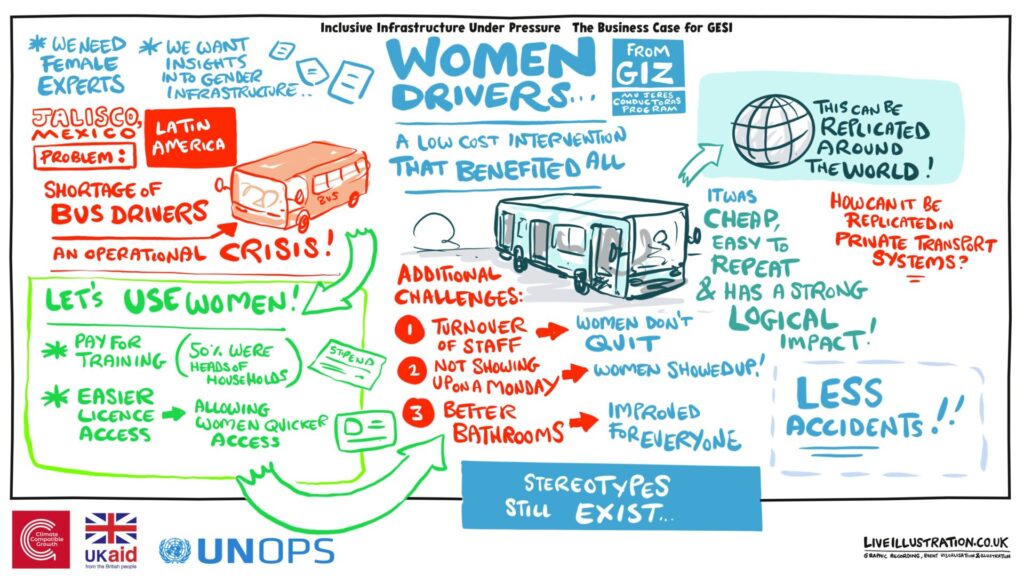 Inclusive Infrastructure Under Pressure The Business Case for GESI
* WE NEED
FEMALE
EXPERTS
* WE WANT
INSIGHTS
INTO GENDER
INFRASTRUCTURE..
WOMEN
DRIVERS...
FROM
GIZ
MUJERES
CONDUCTORAS
PROGRAM
A LOW COST INTERVENTION
THAT BENEFITED ALL
JALISCO,
MEXICO
LATIN
AMERICA
PROBLEM:
SHORTAGE OF
BUS DRIVERS
AN OPERATIONAL CRISIS!
BUS
LET'S USE WOMEN!
* PAY FOR
TRAINING
(50% WERE
HEADS OF
HOUSEHOLDS)
STIPEND
* EASIER
LICENCE
ACCESS
ALLOWING
WOMEN QUICKER
ACCESS
ADDITIONAL
CHALLENGES:
1 TURNOVER
OF STAFF
WOMEN DON'T
QUIT
2 NOT SHOWING
UP ON A MONDAY
WOMEN SHOWED UP!
3 BETTER
BATHROOMS
IMPROVED
FOR EVERYONE
THIS CAN BE
REPLICATED
AROUND
THE WORLD!
IT WAS
CHEAP,
EASY TO
REPEAT
& HAS A STRONG
LOGICAL
IMPACT!
HOW CAN IT BE
REPLICATED IN
PRIVATE TRANSPORT
SYSTEMS?
LESS
ACCIDENTS!!
STEREOTYPES
STILL EXIST...
Climate
Compatible
Growth
UKaid
from the British people
UNOPS
LIVEILLUSTRATION.CO.UK
GRAPHIC RECORDING, EVENT VISUALISATION & ILLUSTRATION